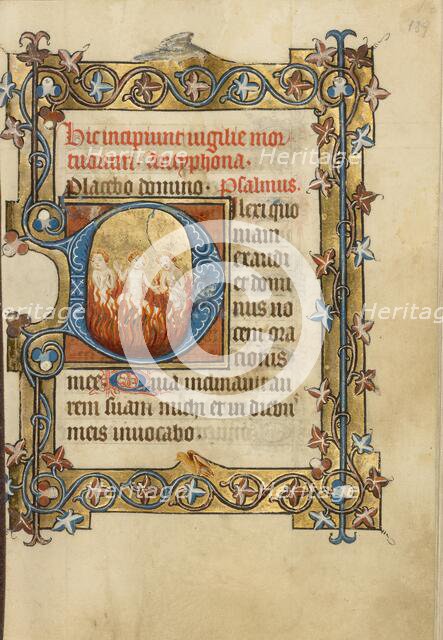 189
Hic incipiunt vigilie mor
tuorum. antyphona.
Placebo domino. Psalmus.
Dilexi quo
niam
exaudi
et domi
nus vo
cem ora
tionis
mee Quia inclinavit au
rem suam michi et in diebus
meis invocabo.
Heritage Heritage Heritage
Heritage Heritage Heritage
Heritage Heritage Heritage
Heritage Heritage Heritage